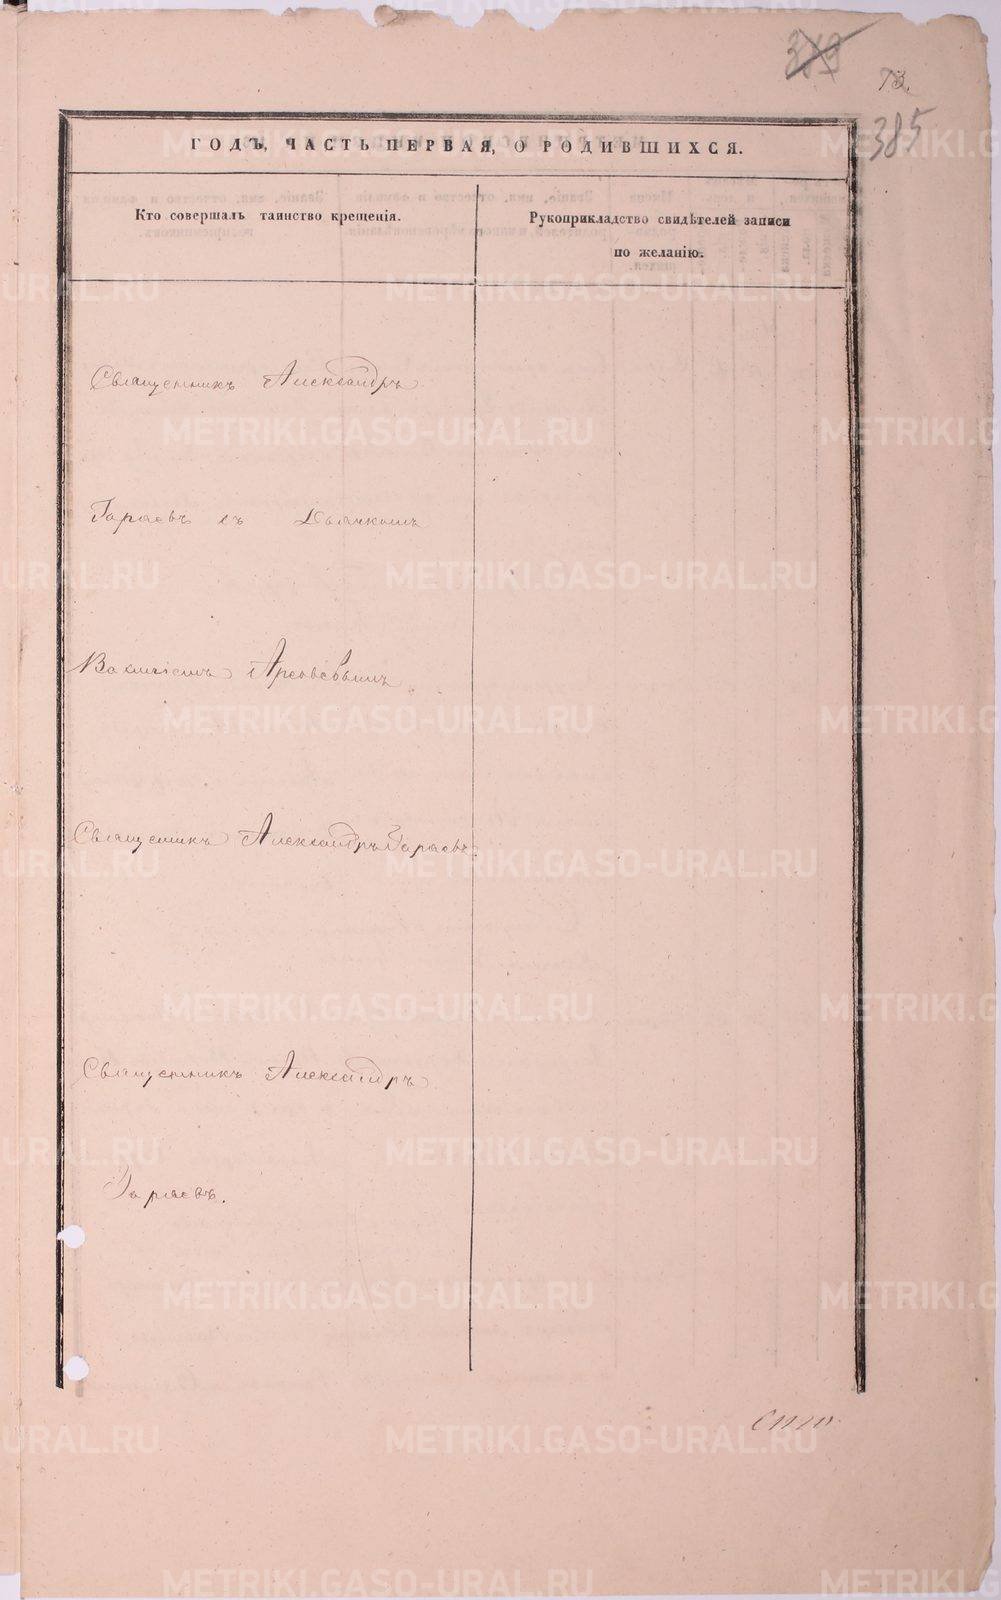 73.
385
ГОДЪ, ЧАСТЬ ПЕРВАЯ, О РОДИВШИХСЯ.
Кто совершалъ таинство крещенія.
Рукоприкладство свидѣтелей записи
по желанію.
Священникъ Александръ
Гараевъ съ Дьячкомъ
Арсеньевымъ
Священникъ Александръ Гараевъ.
Священникъ Александръ
Гараевъ.
METRIKI.GASO-URAL.RU